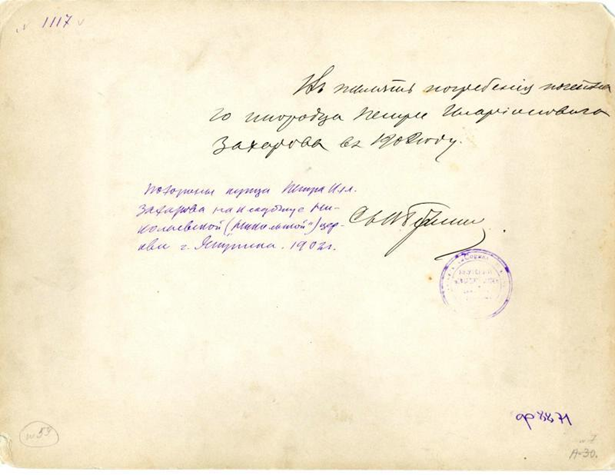 1117
Въ память погребенія почетна
го инородца Петра Иларіоновича
Захарова въ 1902 году.
Похороны купца Петра Ил.
Захарова на кладбище Ни-
колаевской (Никольской) цер-
кви г. Якутска. 1902 г.
53
ф 8871
А-30.